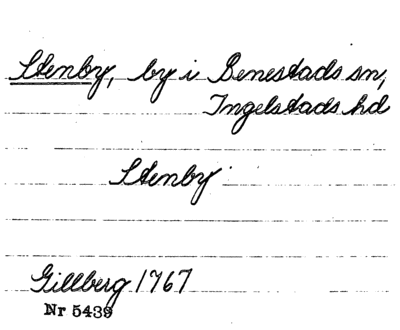 Stenby, by i Benestads sn,
Ingelstads hd
Stenby
Gillberg 1767
Nr 5439